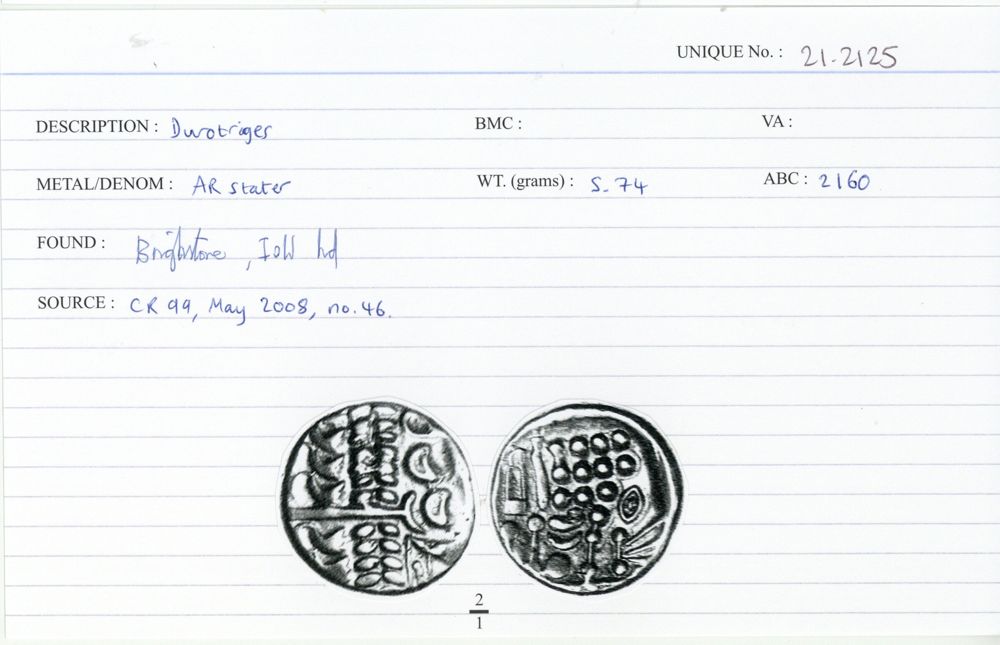 UNIQUE No. : 21-2125
DESCRIPTION : Durotriges BMC : VA :
METAL/DENOM : AR stater WT. (grams) : 5.74 ABC : 2160
FOUND : Brighstone, IoW hd
SOURCE : CR 99, May 2008, no. 46.
2
1